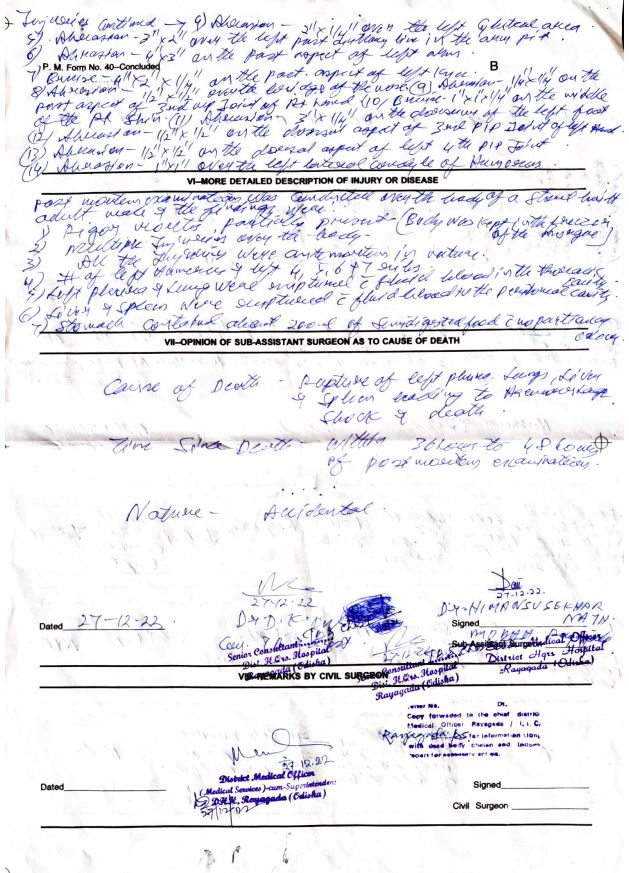 Injuries continued → 4) Abrasion - 2"x1/4" over the left Gluteal area.
5) Abrasion - 2"x2" over the left post axillary line in the arm pit.
6) Abrasion - 4"x3" on the post aspect of left arm.
P. M. Form No. 40–Concluded
B
7) Bruise - 4"x2"x1/4" on the post. aspect of left
8) Abrasion - 1/2"x on the bridge of the nose (9) Abrasion - 1/4x1/4 on the
post aspect of 3rd Joint of Rt hand (10) Bruise - 1"x1"x1/4" on the middle
of the Rt Shin (11) Abrasion - 3"x1/4" on the dorsum of the left foot
(12) Abrasion - 1/2"x1/2" on the dorsal aspect of 3rd PIP Joint of left Hand
(13) Abrasion - 1/2"x1/2" on the dorsal aspect of left 4th PIP Joint
(14) Abrasion - 1"x1" over the left lateral condyle of Humerus
VI–MORE DETAILED DESCRIPTION OF INJURY OR DISEASE
Post mortem examination was conducted over the body of a built
adult male & the findings were
1) Rigor mortis partially present - (Body was kept in the freezer
of the morgue)
2) multiple Injuries over the body
3) All the Injuries were antemortem in nature.
4) # of left Humerus & left 4, 5, 6 & 7 ribs
5) Left pleura & Lung were ruptured c fluid blood in the thoracic cavity.
6) Liver & Spleen were ruptured c fluid blood in the peritoneal cavity.
7) Stomach contained about 200ml of Semidigested food c no particular
odour.
VII–OPINION OF SUB-ASSISTANT SURGEON AS TO CAUSE OF DEATH
Cause of Death - Rupture of left pleura, Lungs, Liver
& Spleen leading to Haemorrhage
Shock & death.
Time Since Death - Within 36 hours to 48 hours
of postmortem examination.
Nature - Accidental.
27-12-22
27.12.22.
Dr. HIMANSU SEKHAR
NATH
Dated 27-12-22
Signed
Sub-Assistant Surgeon
Senior Consultant
Dist. H.Qrs. Hospital
Rayagada (Odisha)
Consultant
Dist. H.Qrs. Hospital
Rayagada (Odisha)
Medical Officer
District Hqrs Hospital
Rayagada (Odisha)
VIII–REMARKS BY CIVIL SURGEON
Letter No. Dt.
Copy forwaded to the chief distric
Medical Officer Rayagada / I. I. C.
Rayagada PS for information along
with dead body chalan and
report for necessary
27.12.22
District Medical Officer
(Medical Services)-cum-Superintendent
D.H.H, Rayagada (Odisha)
Dated
Signed
Civil Surgeon